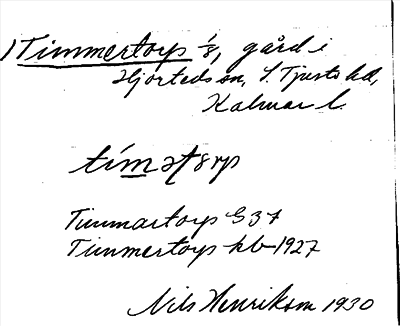 Timmertorp 1/8, gård i
Hjorteds sn, S. Tjusts hd,
Kalmar l.
Timmartorp G 37
Timmertorp kb 1927
Nils Henrikson 1930